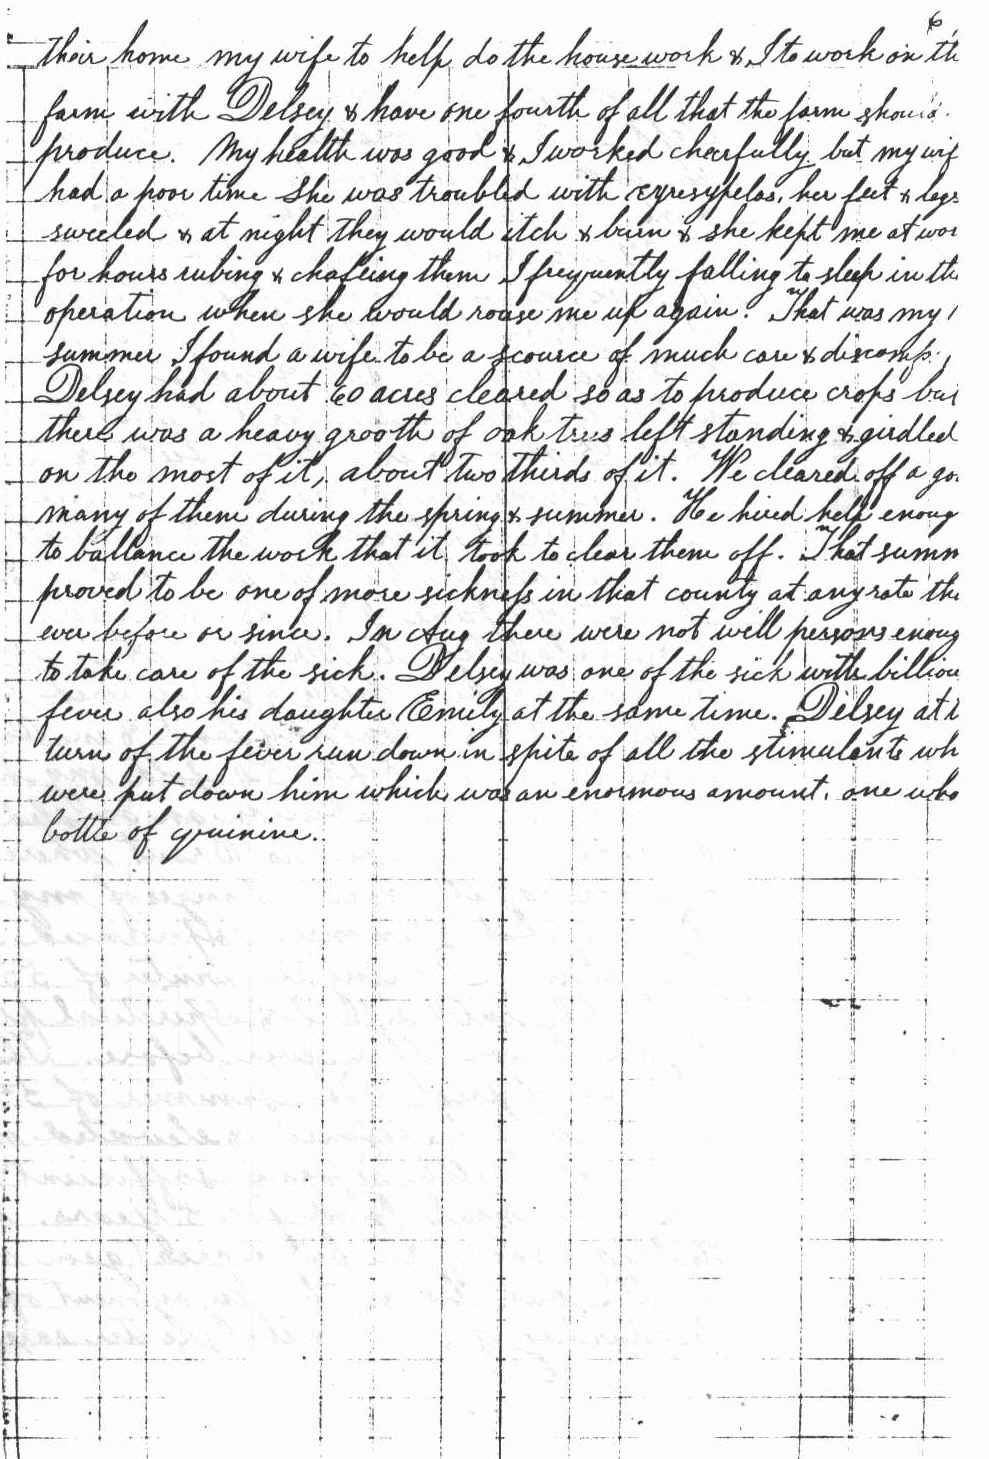 6
their home my wife to help do the house work & I to work on th
farm with Delsey & have one fourth of all that the farm should
produce. My health was good & I worked cheerfully but my wif
had a poor time She was troubled with eyresypelas, her feet & legs
sweeled & at night they would itch & burn & she kept me at wor
for hours rubing & chafeing them I frequently falling to sleep in the
operation when she would rouse me up again. That was my
summer I found a wife to be a scource of much care & discomp
Delsey had about 60 acres cleared so as to produce crops but
there was a heavy grooth of oak trees left standing & girdled
on the most of it, about two thirds of it. We cleared off a go
many of them during the spring & summer. He hired help enoug
to ballance the work that it took to clear them off. That summ
proved to be one of more sickness in that county at any rate tha
ever before or since. In Aug there were not well persons enoug
to take care of the sick. Delsey was one of the sick with billiou
fever also his daughter Emily at the same time. Delsey at t
turn of the fever run down in spite of all the stimulents wh
were put down him which was an enormous amount, one who
bottle of quinine.